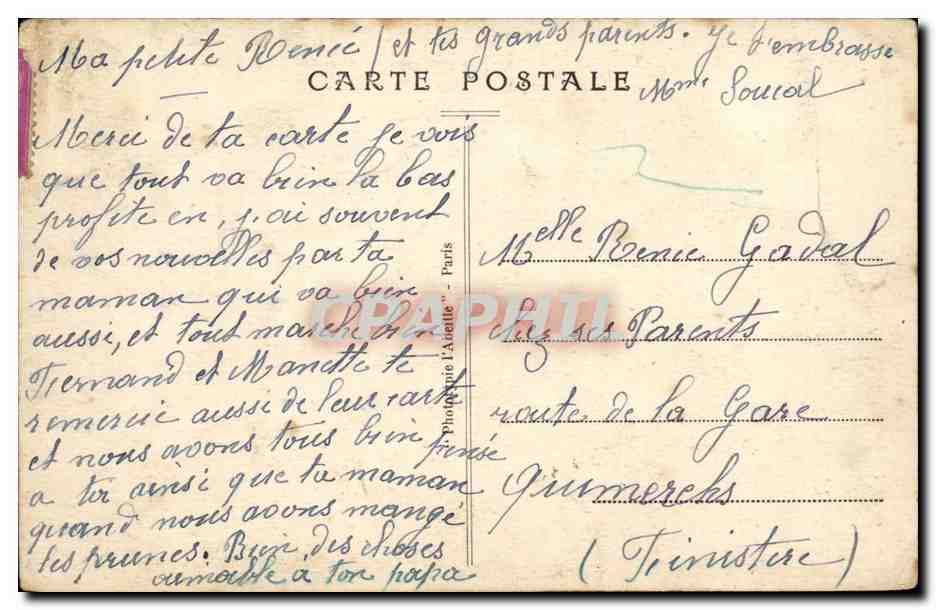 Ma petite Renée / et tes grands parents. Je t'embrasse
Mme Soucal
CARTE POSTALE
Merci de ta carte je vois
que tout va bien la bas
profite en, j'ai souvent
de vos nouvelles par ta
maman qui va bien
aussi, et tout marche bien
Fernand et Manette te
remercie aussi de leur carte
et nous avons tous bien pensé
a toi ainsi que ta maman
quand nous avons mangé
les prunes. Bien des choses
aimable a ton papa
"Phototypie l'Abeille" - Paris
CPAPHIL
Melle Renée Gadal
chez ses Parents
route de la Gare
Quimerchs
(Finistere)